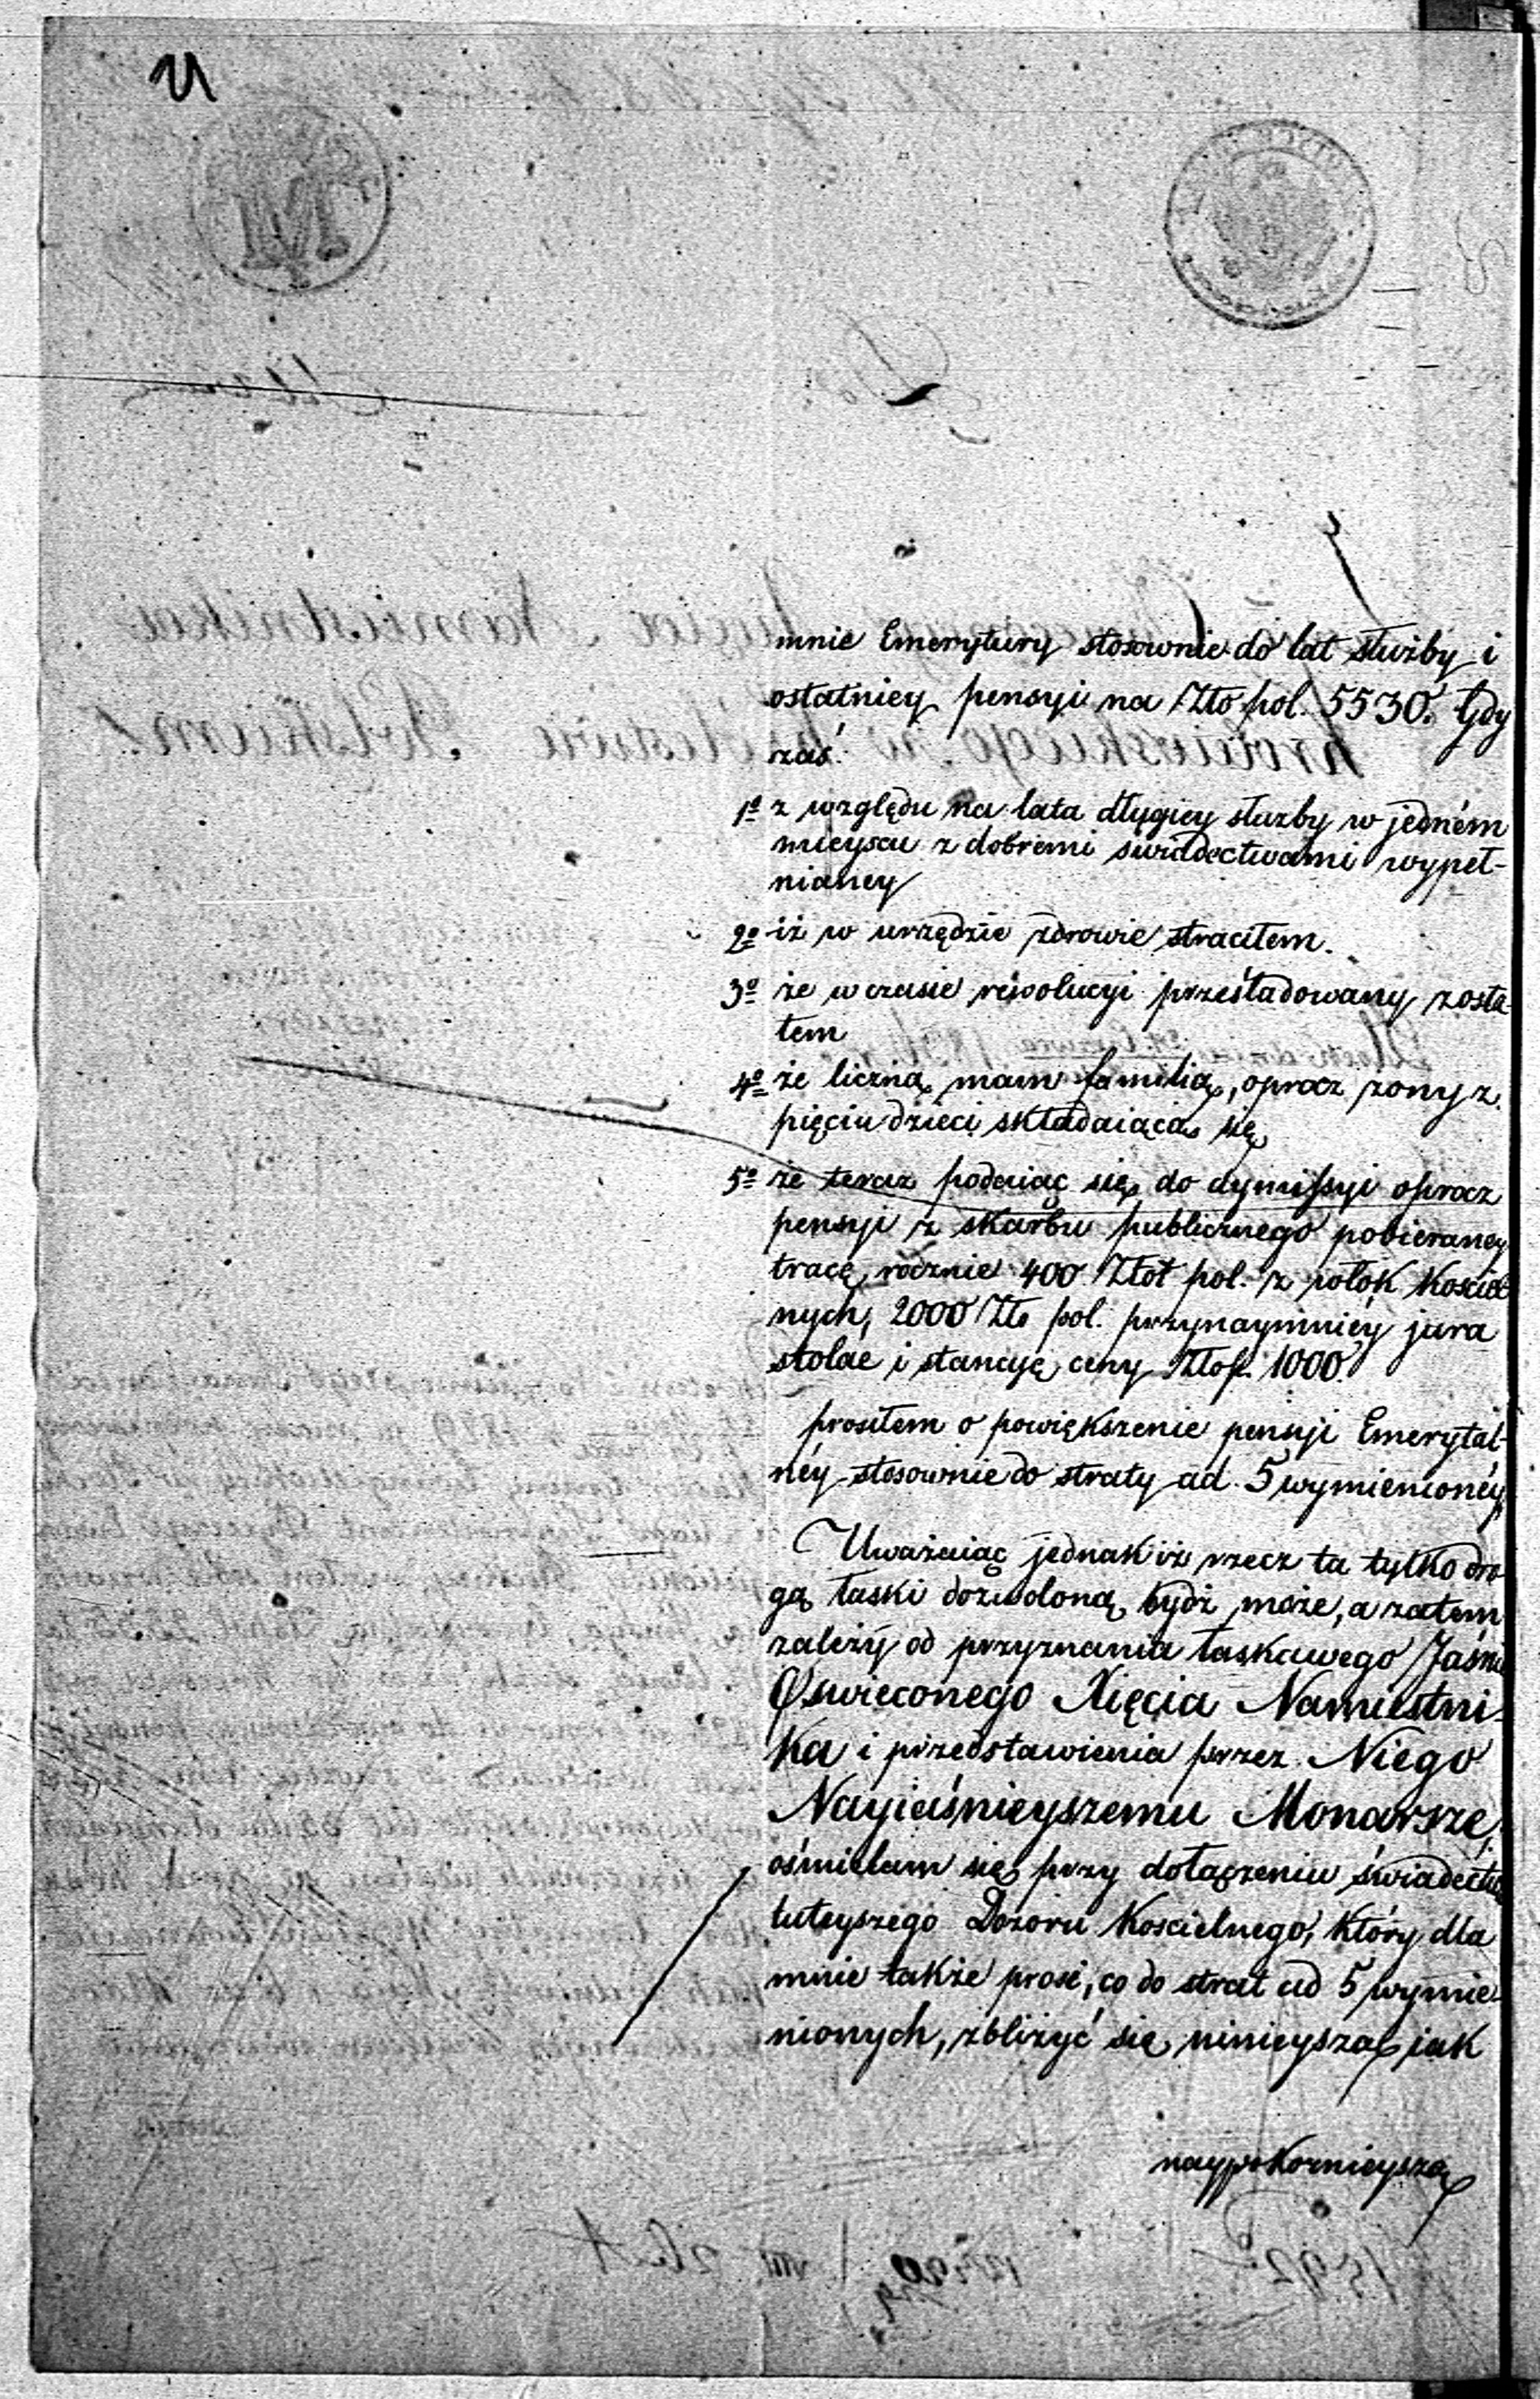 mnie Emerytury stosownie do lat służby i
ostatniey pensyi na Złto pol. 5530. Gdy
zaś.
1º z względu na lata długiey służby w jedném
mieyscu z dobremi swiadectwami wypeł-
nianey
2º iż w urzędzie zdrowie straciłem.
3º że w czasie rewolucyi prześladowany zosta
łem
4º że liczną mam familią, oprocz zony z
pięciu dzieci składaiącą się
5º że teraz podaiąc się do dymissyi oprocz
pensyi z skarbu publicznego pobieraney
tracę rocznie 400 Złot pol. z włok Kościel
nych, 2000 Złt pol. przynaymniéy jura
stolae i stancyę ceny Złtop. 1000.
prosiłem o powiększenie pensyi Emerytal-
néy stosownie do straty ad 5 wymienionéy
Uważaiąc jednak iż rzecz ta tylko dro
gą łaski dozwoloną bydź może, a zatem
zależy od przyznania łaskawego Jaśnie
Oswieconego Xięcia Namiestni-
ka i przedstawienia przez Niego
Nayiaśnieyszemu Monarsze,
ośmielam się przy dołączeniu świadectwa
tuteyszego Dozoru Koscielnego, który dla
mnie także prosi, co do strat ad 5 wymie-
nionych, zbliżyć się ninieyszą jak
naypokornieyszą